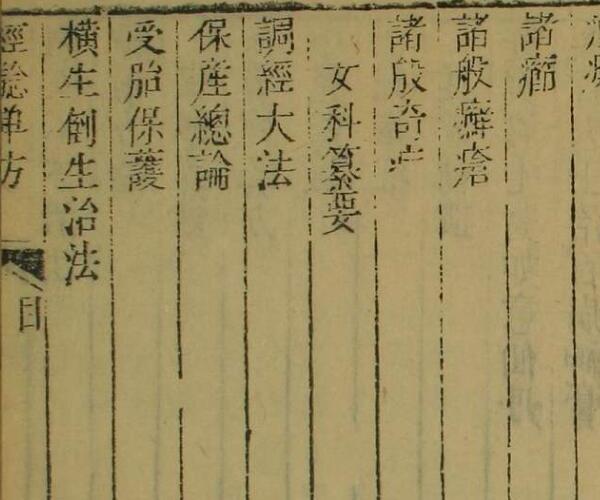 諸癤
諸般癬瘡
諸般奇症
女科纂要
調經大法
保産總論
受胎保護
橫生倒生治法
經驗单方
目